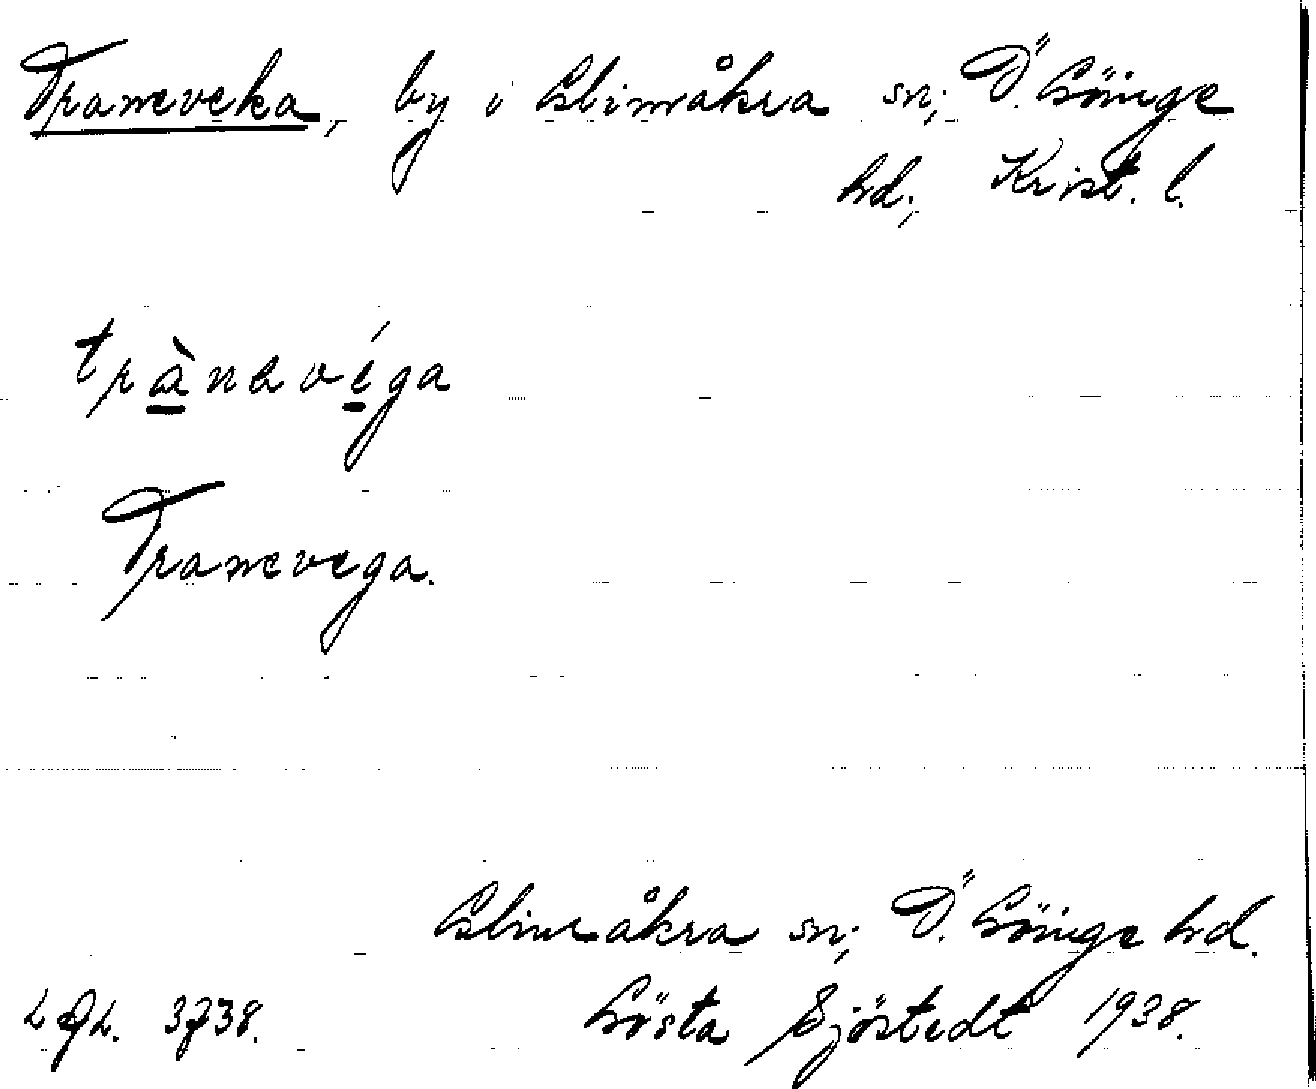 Traneveka, by i Glimåkra sn, Ö. Göinge
hd, Krist. l.
trànavíga
Tranevega.
Glimåkra sn, Ö. Göinge hd.
Gösta Sjöstedt 1938.
3738.